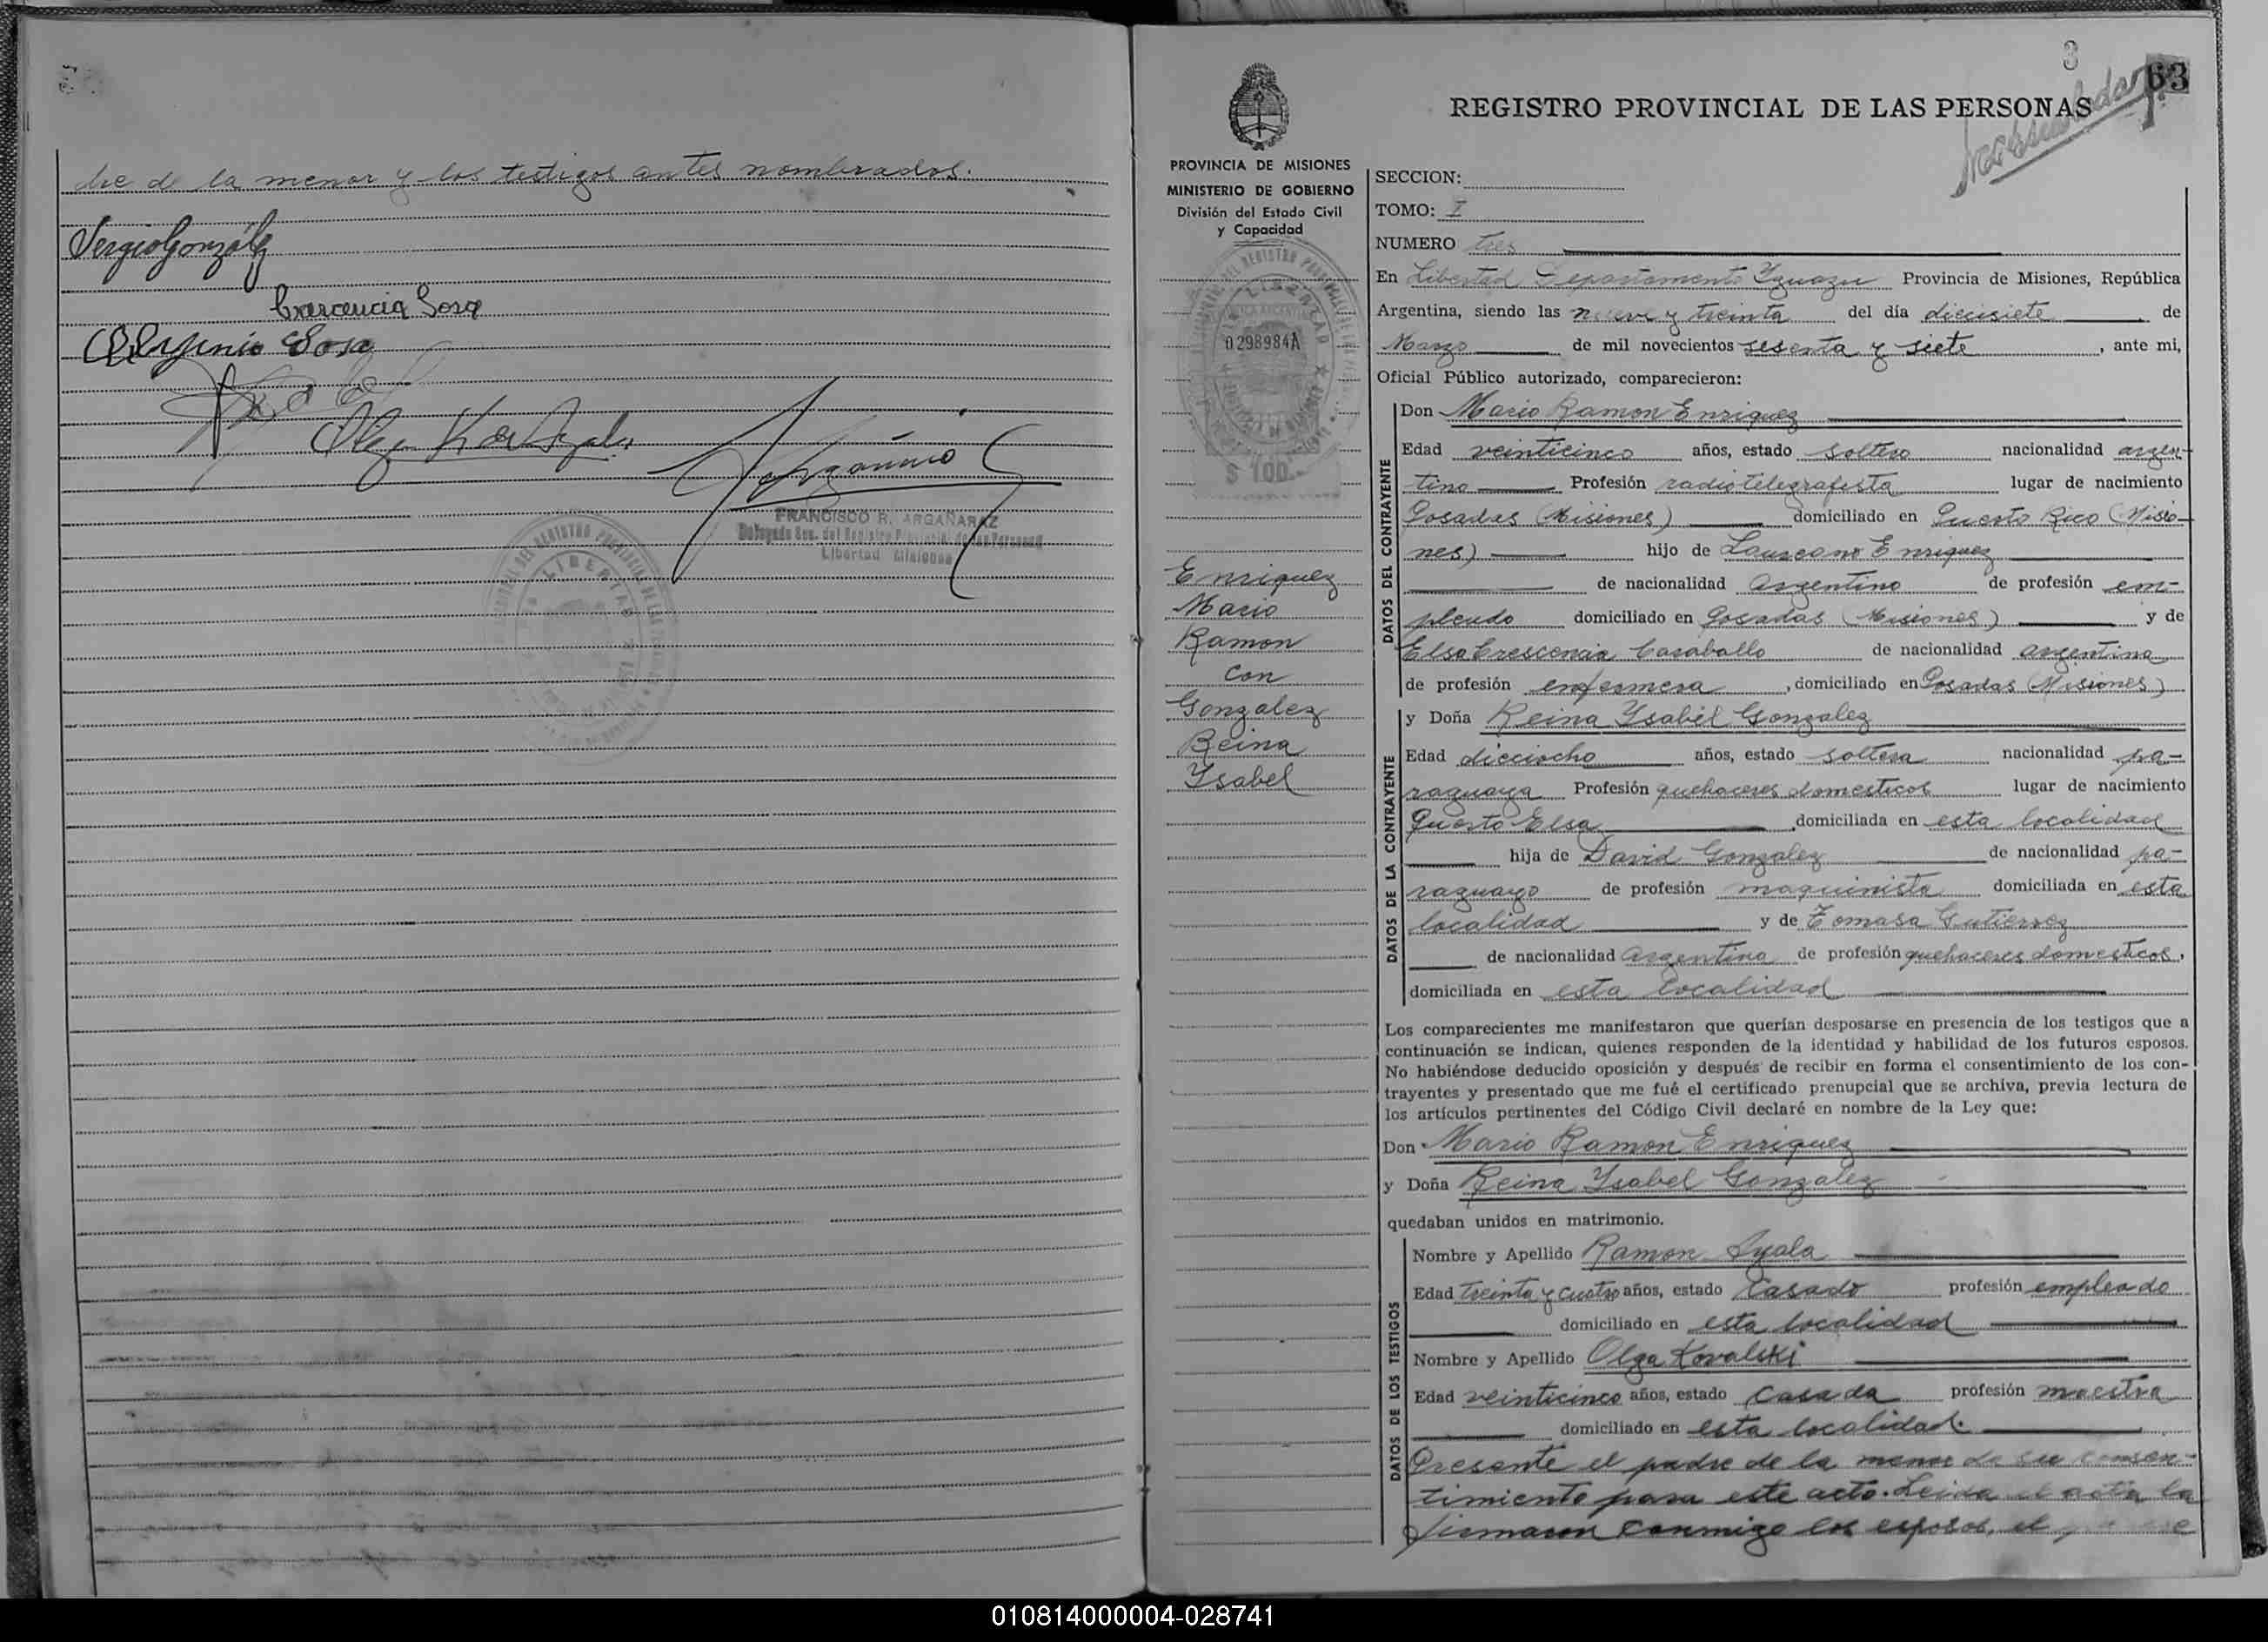 dre de la menor y los testigos antes nombrados.
Sergio González
Crescencia Sosa
Sosa
Olga K de Ayala
FRANCISCO R. ARGAÑARAZ
Libertad Misiones
LIBERTAD
3
63
REGISTRO PROVINCIAL DE LAS PERSONAS
PROVINCIA DE MISIONES
MINISTERIO DE GOBIERNO
División del Estado Civil
y Capacidad
0298984A
$ 100.-
Enriquez
Mario
Ramon
con
Gonzalez
Reina
Ysabel
SECCION:
TOMO: I
NUMERO tres
En Libertad Departamento Yguazu Provincia de Misiones, República
Argentina, siendo las nueve y treinta del día diecisiete de
Marzo de mil novecientos sesenta y siete, ante mi,
Oficial Público autorizado, comparecieron:
DATOS DEL CONTRAYENTE
Don Mario Ramon Enriquez
Edad veinticinco años, estado soltero nacionalidad argen-
tino Profesión radiotelegrafista lugar de nacimiento
Posadas (Misiones) domiciliado en Puerto Rico (Misio-
nes) hijo de Laureano Enriquez
de nacionalidad argentino de profesión em-
pleado domiciliado en Posadas (Misiones) y de
Elsa Crescencia Caraballo de nacionalidad argentina
de profesión enfermera, domiciliado en Posadas (Misiones)
DATOS DE LA CONTRAYENTE
y Doña Reina Ysabel Gonzalez
Edad dieciocho años, estado soltera nacionalidad pa-
raguaya Profesión quehaceres domesticos lugar de nacimiento
Puerto Elsa domiciliada en esta localidad
hija de David Gonzalez de nacionalidad pa-
raguayo de profesión maquinista domiciliada en esta
localidad y de Tomasa Gutierrez
de nacionalidad Argentina de profesión quehaceres domesticos,
domiciliada en esta localidad
Los comparecientes me manifestaron que querían desposarse en presencia de los testigos que a
continuación se indican, quienes responden de la identidad y habilidad de los futuros esposos.
No habiéndose deducido oposición y después de recibir en forma el consentimiento de los con-
trayentes y presentado que me fué el certificado prenupcial que se archiva, previa lectura de
los artículos pertinentes del Código Civil declaré en nombre de la Ley que:
Don Mario Ramon Enriquez
y Doña Reina Ysabel Gonzalez
quedaban unidos en matrimonio.
DATOS DE LOS TESTIGOS
Nombre y Apellido Ramon Ayala
Edad treinta y cuatro años, estado Casado profesión empleado
domiciliado en esta localidad
Nombre y Apellido Olga Kovalski
Edad veinticinco años, estado casada profesión maestra
domiciliado en esta localidad.
Presente el padre de la menor da su consen-
timiento para este acto. Leida el acta la
firmaron conmigo los esposos, el
010814000004-028741